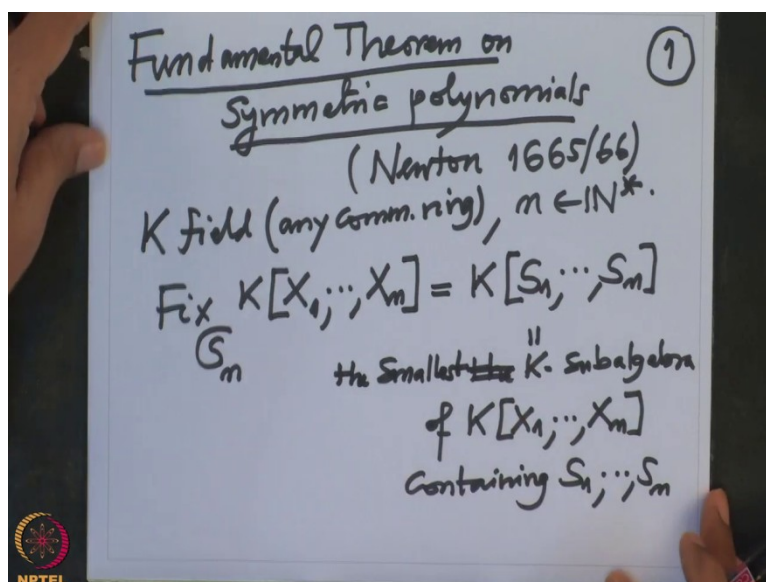 Fundamental Theorem on
①
Symmetric polynomials
(Newton 1665/66)
K field (any comm. ring), n ∈ ℕ*.
Fix K[X₁,⋯,Xₙ] = K[S₁,⋯,Sₙ]
𝔖ₙ
||
the smallest K-subalgebra
of K[X₁,⋯,Xₙ]
Containing S₁,⋯,Sₙ
NPTEL